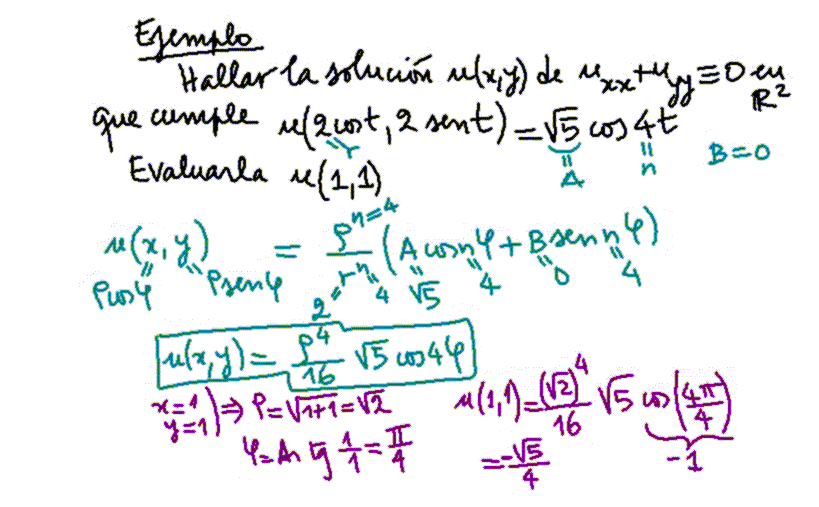 Ejemplo
Hallar la solución u(x,y) de u_xx+u_yy≡0 en ℝ²
que cumple u(2cost, 2 sent)=√5 cos 4t
=r =A =n B=0
Evaluarla u(1,1)
u(x, y) = ρ^n=4 / r^n (A cos nφ + B sen nφ)
ρcosφ ρsenφ 2 4 √5 4 0 4
u(x,y) = ρ⁴/16 √5 cos4φ
x=1 y=1 ⇒ ρ=√1+1=√2 u(1,1)=(√2)⁴/16 √5 cos(4π/4)
φ=Ar tg 1/1=π/4 =-√5/4 -1